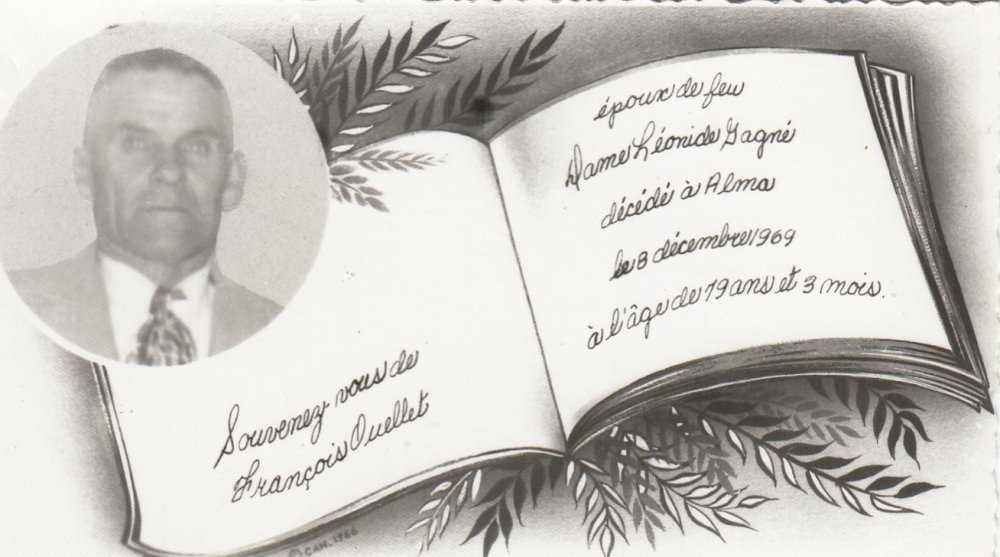 Souvenez vous de
François Ouellet
époux de feu
Dame Léonide Gagné
décédé à Alma
le 8 décembre 1969
à l'âge de 79 ans et 3 mois.
© CAN. 1966